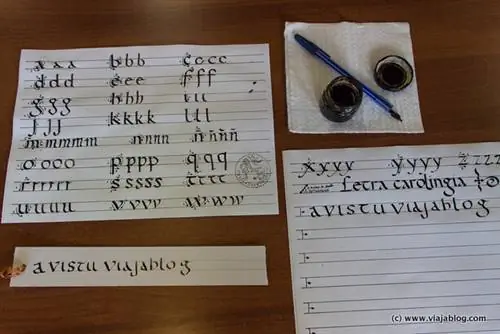 a a a a b b b b c c c c
d d d d e e e e f f f f
g g g g h h h h i i i i
j j j j k k k k l l l l
m m m m m n n n n ñ ñ ñ ñ
o o o o p p p p q q q q
r r r r r r s s s s s t t t t t
u u u u u v v v v w w w
a vistu viajablog
x y y y y y y y z z z z
Letra carolingia
a vistu viajablog
(c) www.viajablog.com